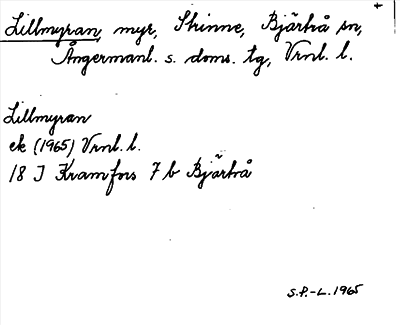 Lillmyran, myr, Skinne, Bjärtrå sn,
Ångermanl. s. doms. tg, Vrnl. l.
Lillmyran
ek (1965) Vrnl. l.
18 J Kramfors 7 b Bjärtrå
S.P.-L. 1965